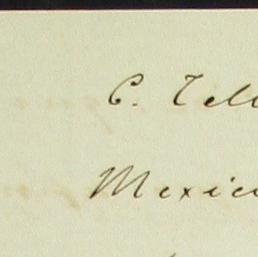 C. Tell
Mexic